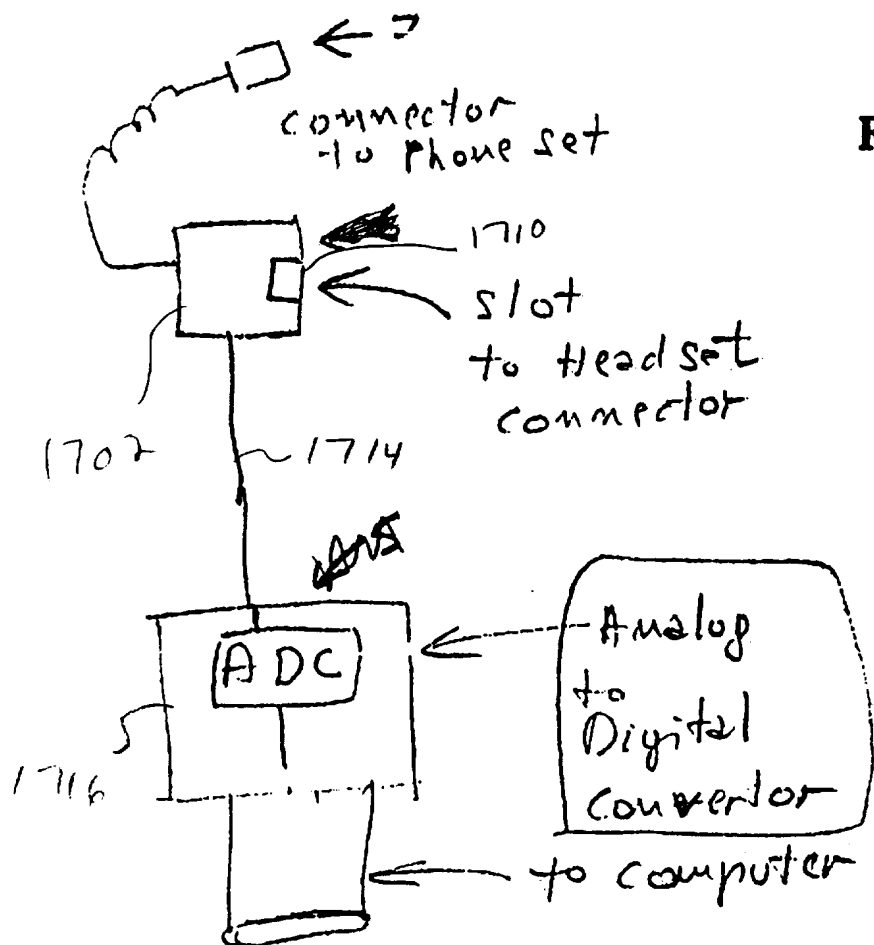 connector
to phone set
1710
Slot
to Headset
connector
1702
1714
ADC
Analog
to
Digital
Convertor
1716
to computer